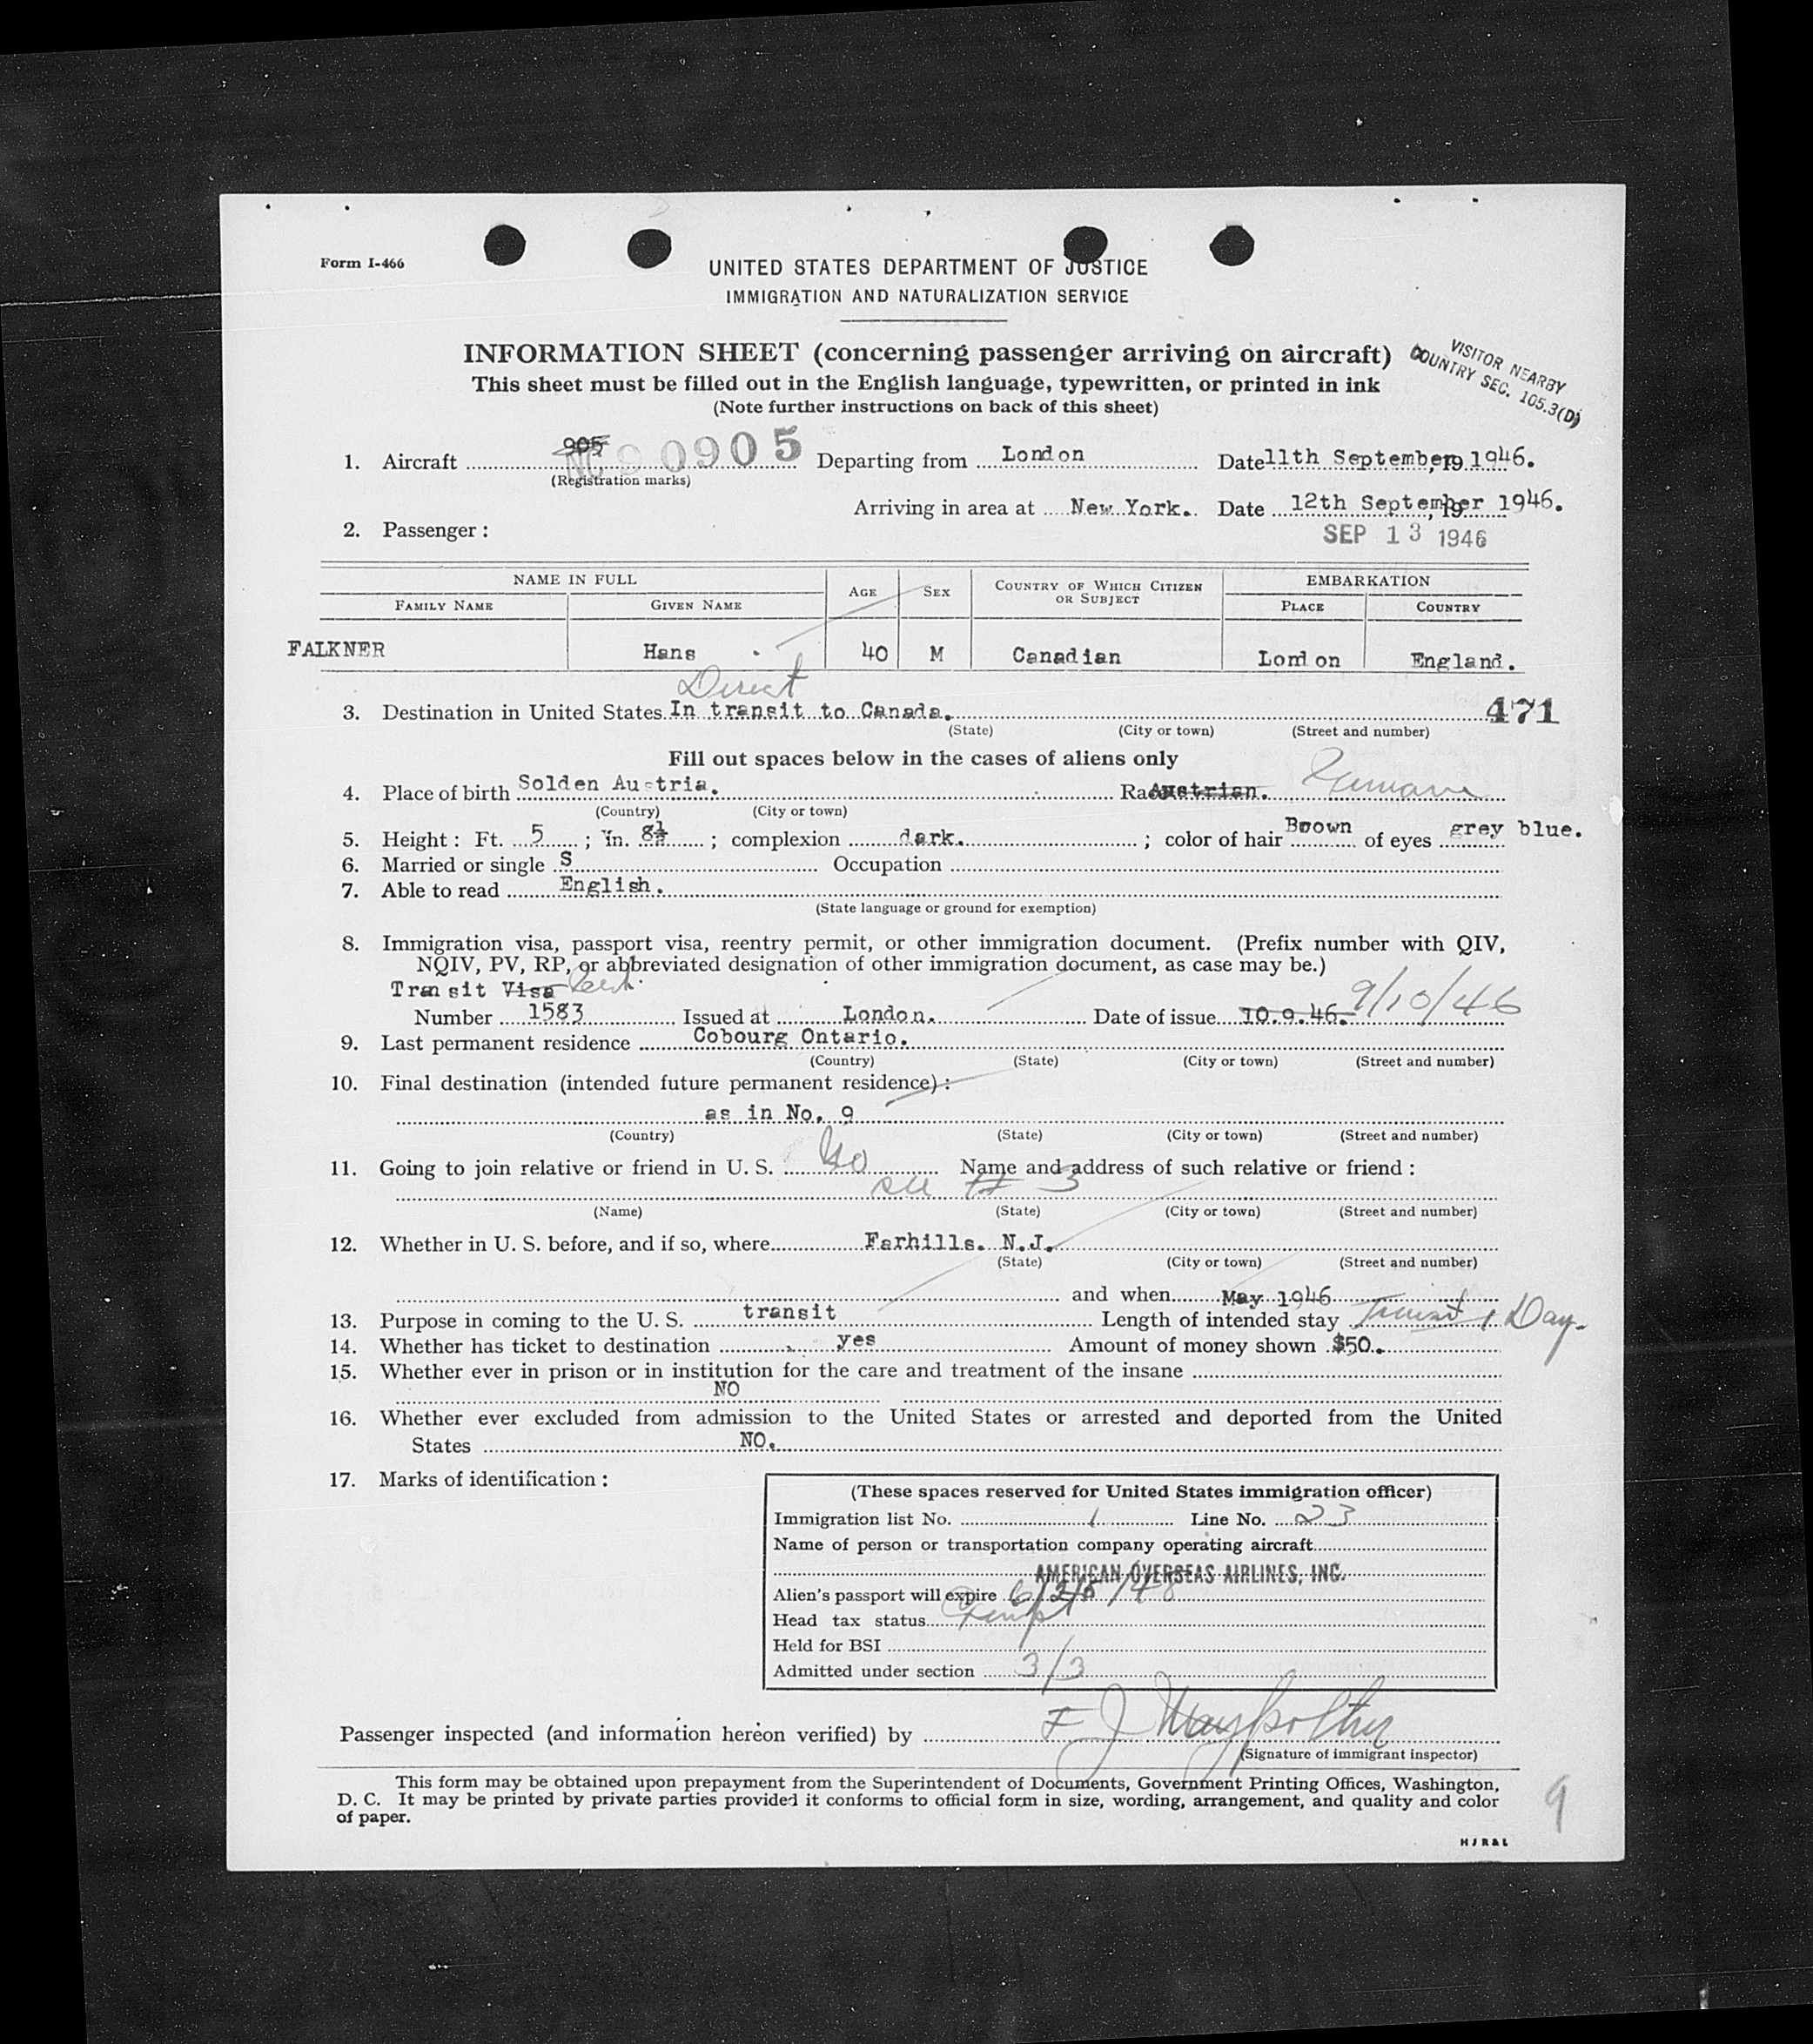 Form I-466
UNITED STATES DEPARTMENT OF JUSTICE
IMMIGRATION AND NATURALIZATION SERVICE
INFORMATION SHEET (concerning passenger arriving on aircraft)
VISITOR NEARBY
COUNTRY SEC. 105.3(D)
This sheet must be filled out in the English language, typewritten, or printed in ink
(Note further instructions on back of this sheet)
1. Aircraft 905 NC 90905 Departing from London Date 11th September, 19 1946.
(Registration marks)
Arriving in area at New York. Date 12th September, 19 1946.
2. Passenger:
SEP 13 1946
NAME IN FULL AGE SEX COUNTRY OF WHICH CITIZEN OR SUBJECT EMBARKATION
FAMILY NAME GIVEN NAME PLACE COUNTRY
FALKNER Hans 40 M Canadian London England.
Direct
3. Destination in United States In transit to Canada. 471
(State) (City or town) (Street and number)
Fill out spaces below in the cases of aliens only
4. Place of birth Solden Austria. Race Austrian. German
(Country) (City or town)
5. Height: Ft. 5; In. 8½; complexion dark.; color of hair Brown of eyes grey blue.
6. Married or single S Occupation
7. Able to read English.
(State language or ground for exemption)
8. Immigration visa, passport visa, reentry permit, or other immigration document. (Prefix number with QIV,
NQIV, PV, RP, or abbreviated designation of other immigration document, as case may be.)
Transit Visa Cert.
Number 1583 Issued at London. Date of issue 10.9.46. 9/10/46
9. Last permanent residence Cobourg Ontario.
(Country) (State) (City or town) (Street and number)
10. Final destination (intended future permanent residence):
as in No. 9
(Country) (State) (City or town) (Street and number)
11. Going to join relative or friend in U. S. No Name and address of such relative or friend:
see # 3
(Name) (State) (City or town) (Street and number)
12. Whether in U. S. before, and if so, where Farhills. N.J.
(State) (City or town) (Street and number)
and when May 1946
13. Purpose in coming to the U. S. transit Length of intended stay Transit 1 Day.
14. Whether has ticket to destination yes Amount of money shown $50.
15. Whether ever in prison or in institution for the care and treatment of the insane
NO
16. Whether ever excluded from admission to the United States or arrested and deported from the United
States NO.
17. Marks of identification:
(These spaces reserved for United States immigration officer)
Immigration list No. 1 Line No. 23
Name of person or transportation company operating aircraft
AMERICAN OVERSEAS AIRLINES, INC.
Alien's passport will expire 6/25/48
Head tax status Exempt
Held for BSI
Admitted under section 3/3
Passenger inspected (and information hereon verified) by F J
(Signature of immigrant inspector)
This form may be obtained upon prepayment from the Superintendent of Documents, Government Printing Offices, Washington,
D. C. It may be printed by private parties provided it conforms to official form in size, wording, arrangement, and quality and color
of paper.
9
HJR&L